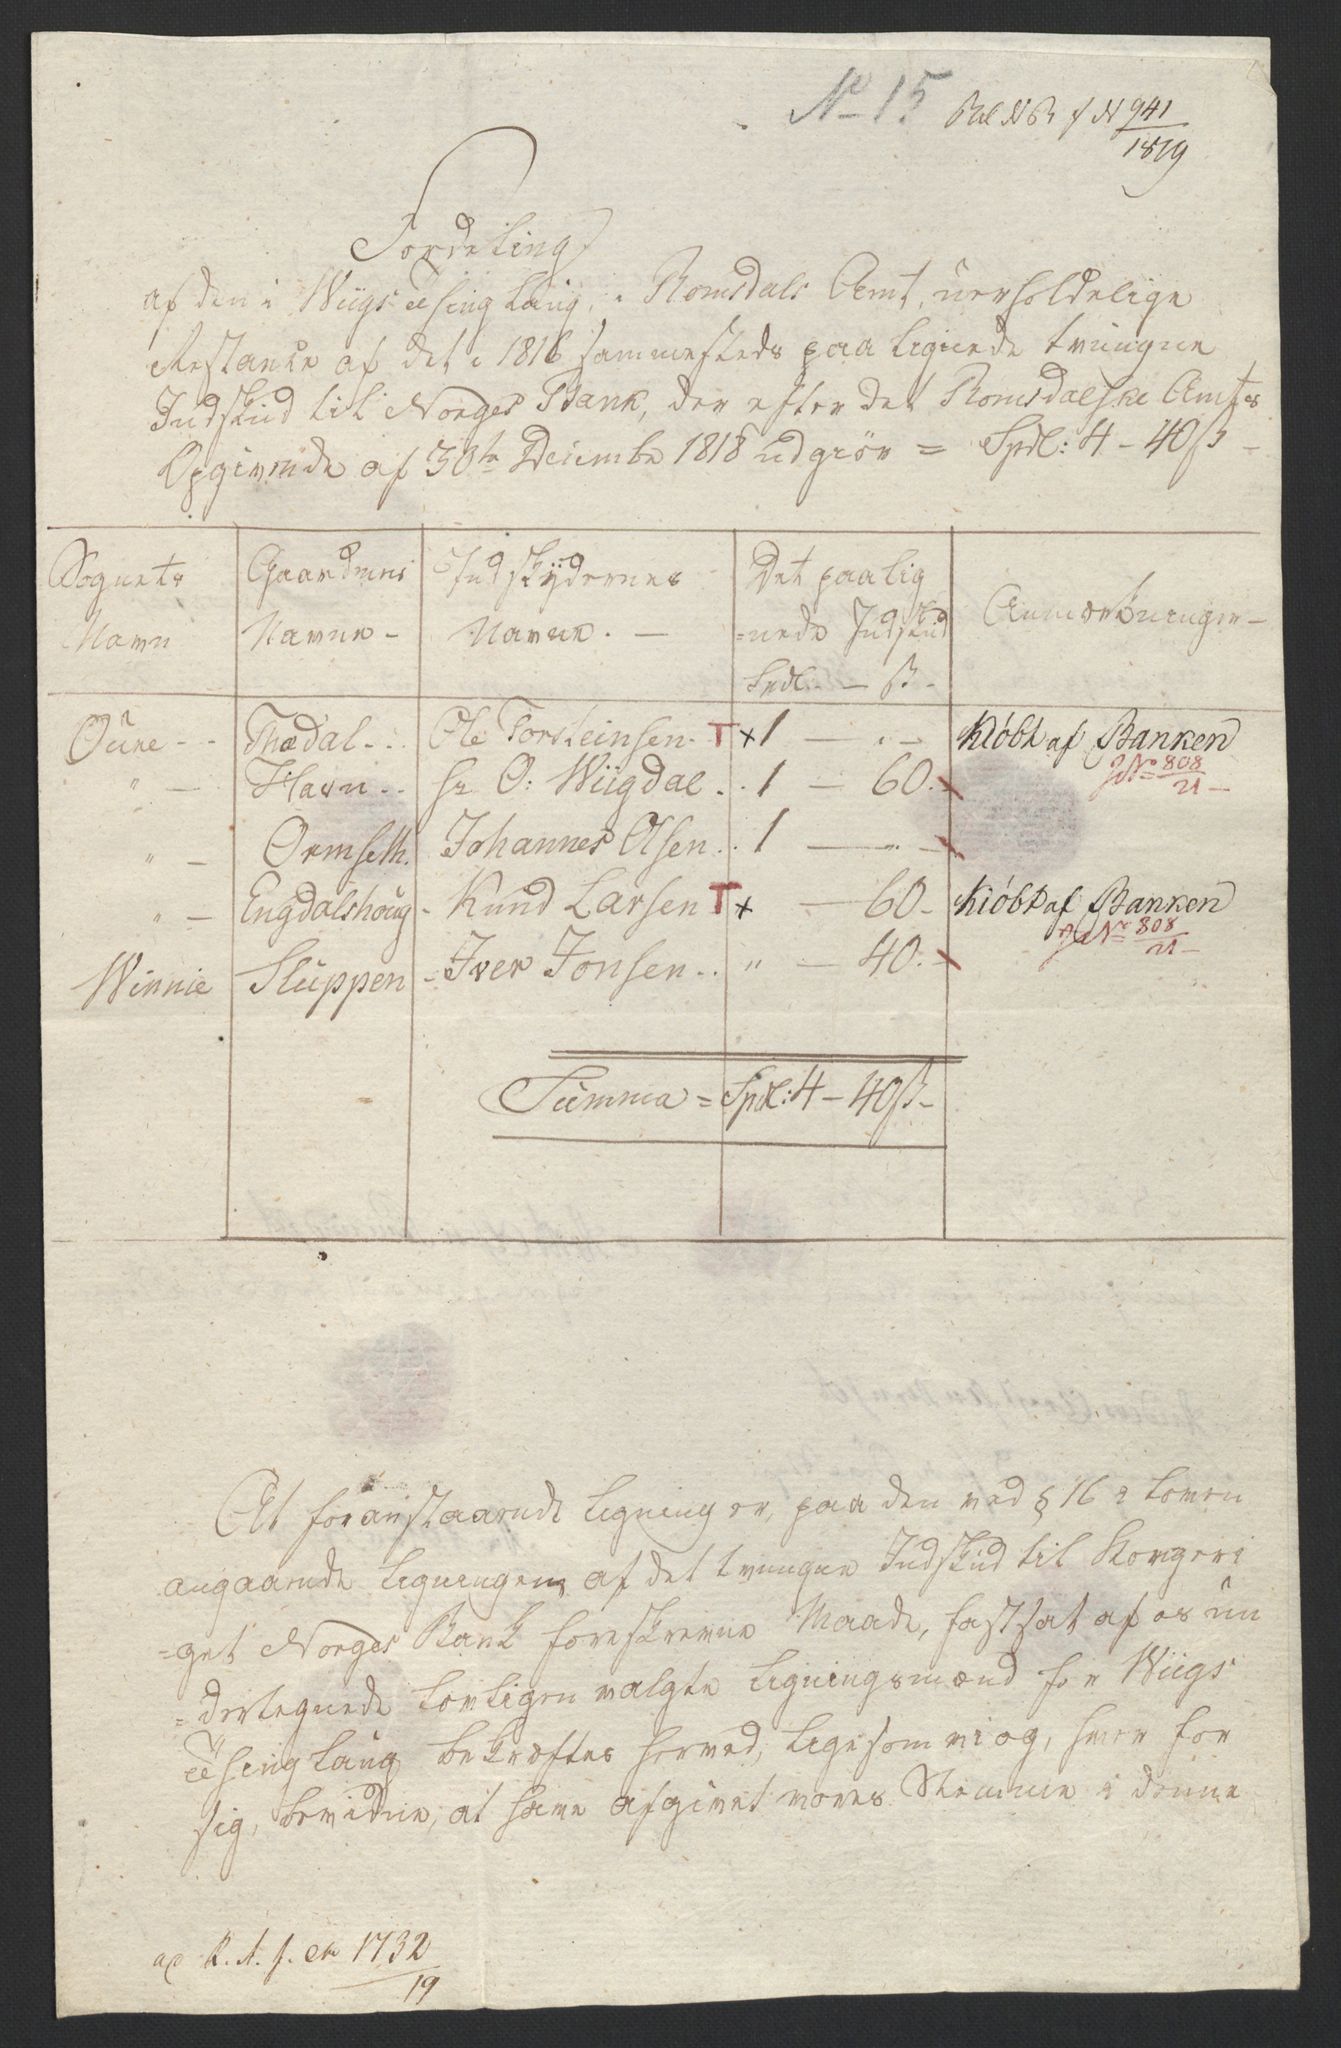 No 15
941
1819
Fordeling
af den i Wiigs Thinglaug, i Romsdals Amt, uerholdelige
Restance af det i 1816 sammesteds paalignede tvungne
Indskud til Norges Bank, der efter det Romsdalske Amtes
Opgivende af 30te Decembr 1818 udgiør = Spdl: 4 - 40 ß -
Sognets Navn
Gaardenes Navne -
Indskydernes Navne. -
Det paalig
=nede Indskud
Spdl. - ß -
Anmærkninger -
Oure - - Thædal - . . Ole Torsteinsen - T x 1 - . - Kiøbt af Banken
JNo 808
21 -
" - Havn . . Hr O: Wiigdal . . 1 - 60. -
" - Ormseth. Johannes Olsen . . 1 - " -
" - Engdalshoug - Knud Larsen T x - 60 - Kiøbt af Banken
JNo 808
21 -
Winnie Sluppen - Iver Jonsen . . " - 40. -
Summa = Spdl: 4 - 40 ß -
At foranstaaende Ligning er, paa den ved § 16 i Loven
angaaende Ligningen af det tvungne Indskud til Kongeri
=get Norges Bank foreskrevne Maade, fastsat af os un
=dertegnede lovligen valgte Ligningsmænd for Wiigs
Thinglaug bekræftes herved, ligesom vi og, hver for
sig, bevidne, at have afgivet vores Stemme i denne
ad R. A. J. No 1732
19